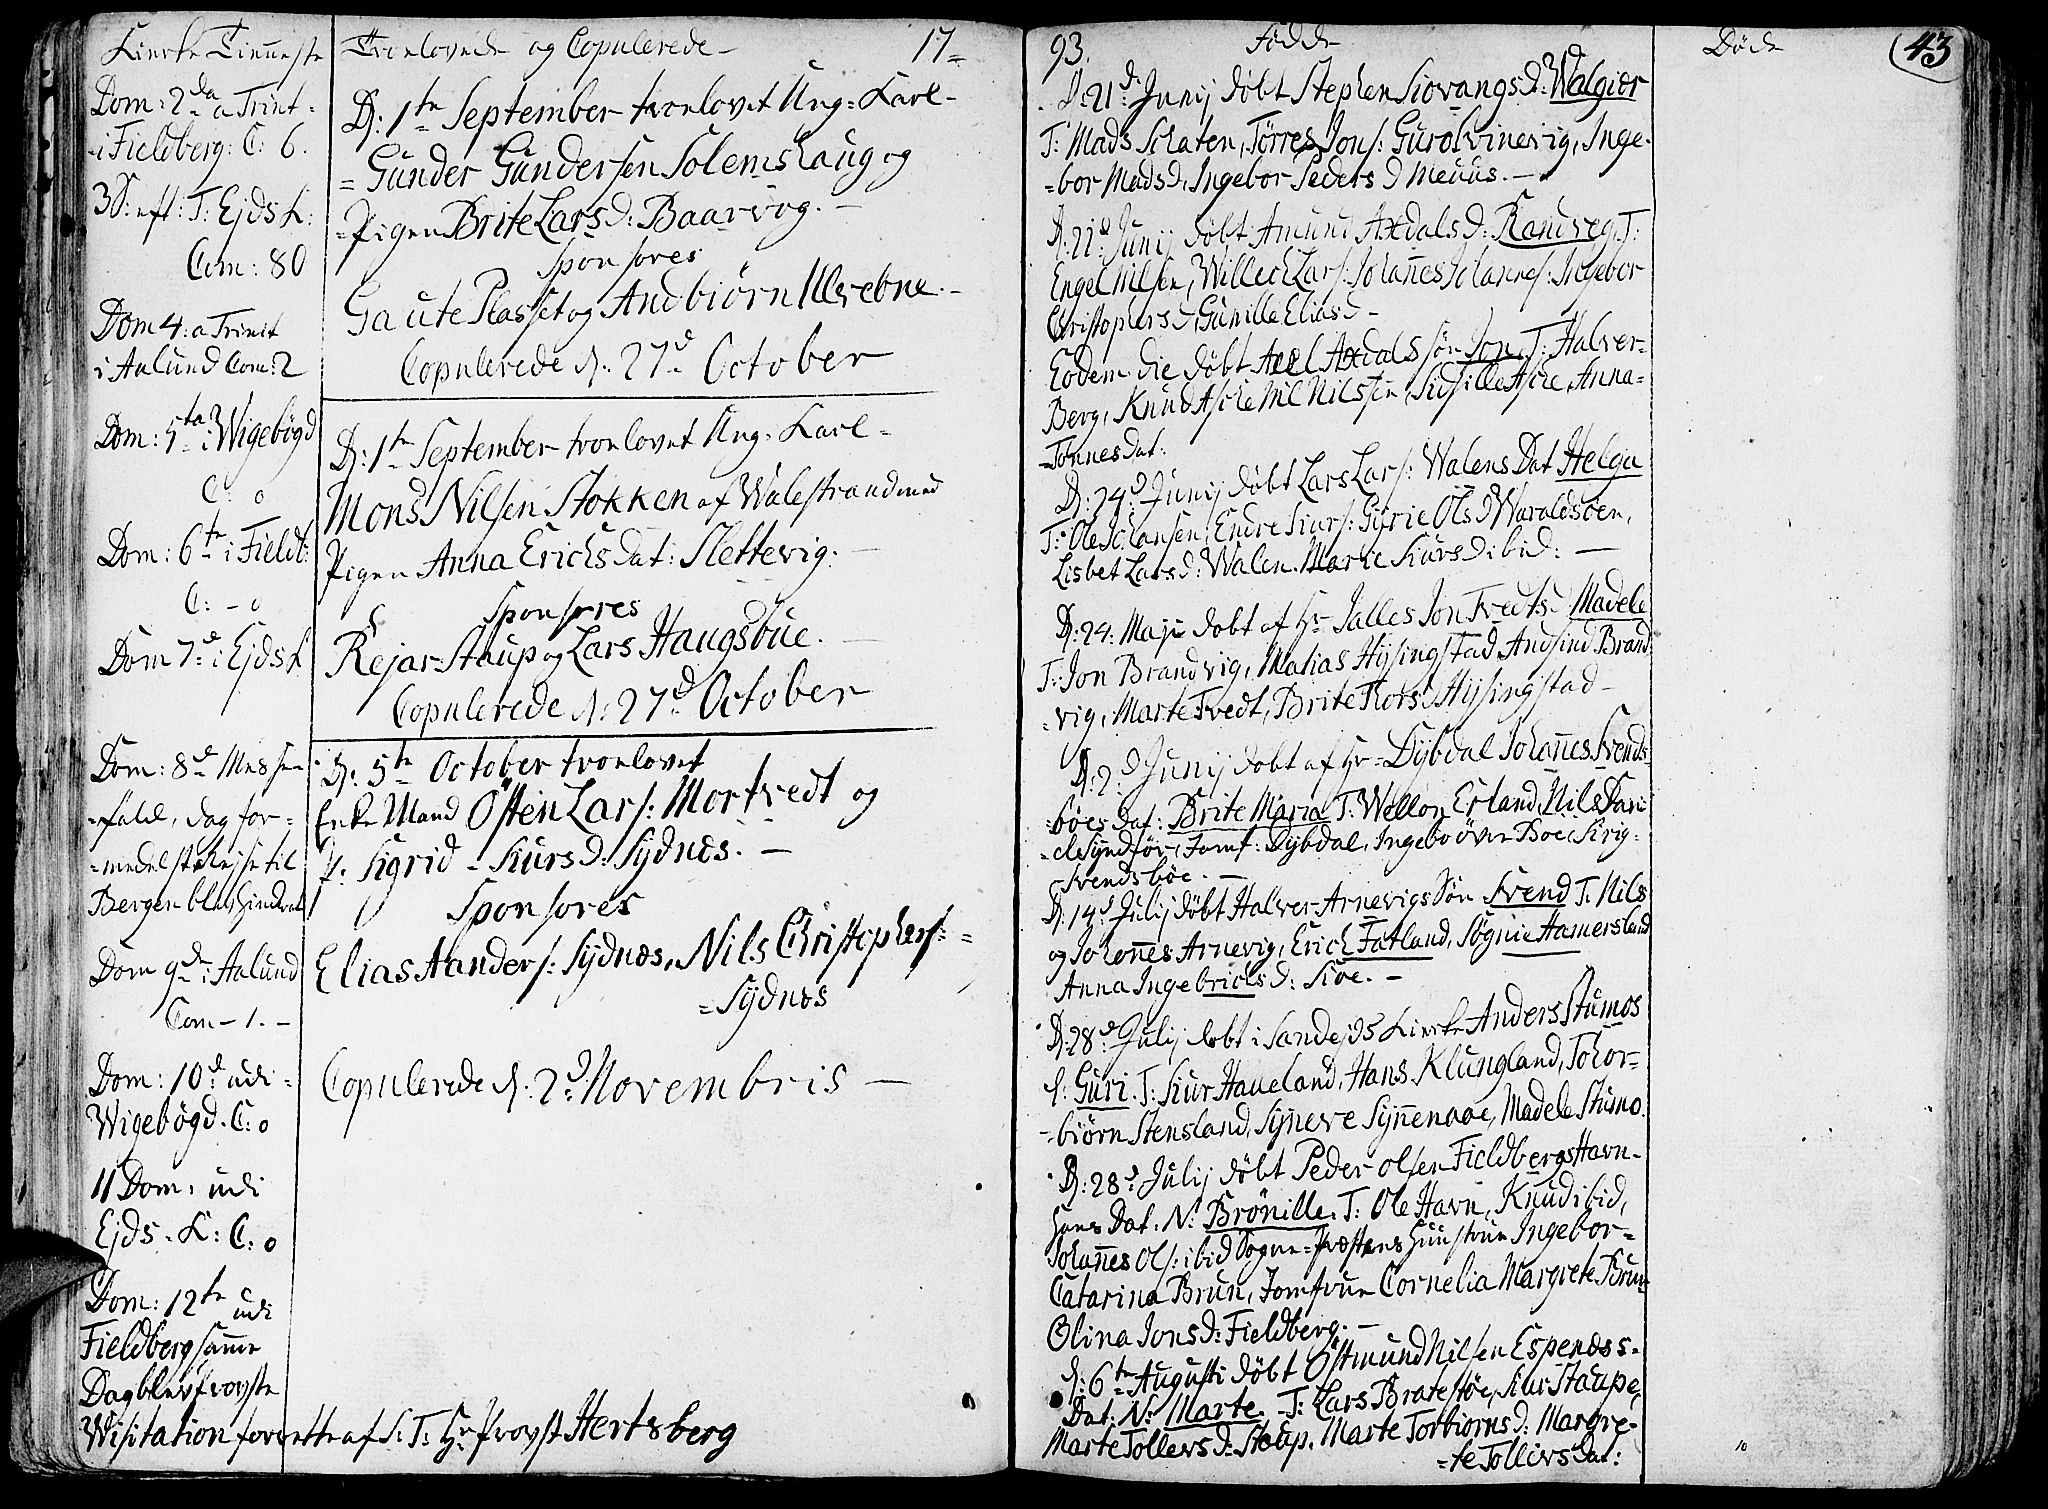 Kierke Tienneste
Dom: 2da a Trint=
i Fieldberg: C: 6.
3 S: eft: T: Ejds k:
Com: 80
Dom 4: a Trinit
i Aalund Com: 2
Dom: 5ta i Wigebögd
C: 0
Dom: 6te i Fieldb:
C: - 0
Dom 7de i Ejds k
Dom: 8de
=fald, dag for=
=medelst Rejse til
Bergen blev hindret
Dom 9de i Aalund
Com - 1. -
Dom: 10de udi=
Wigebögd. C: 0
11 Dom: udi
Ejds - K: C: 0
Dom: 12te udi
Fieldberg samme
Dag blev provste
Wisitation forrette af S: T: Hr Provst Hertsberg
Troelovede og Copulerede - 17=
D: 1te September troelovet Ung=Karl-
=Gunder Gundersen Solemshaug og
=Pigen Brite Lars D: Baarvog. -
Sponsores
Gaute Plasset og Andbiörn Ulvebne. -
Copulerede d: 27d October
D: 1te September troelovet Ung=Karl-
Mons Nilsen Stokken af Walestrand med
Pigen Anna Erichs Dat: Slettevig. -
Sponsores
Rejar Staup og Lars Haugsbüe. -
Copulerede d: 27d October
D: 5te October troelovet
Enke Mand Östen Lars: Mortvedt og
P: Sigrid - Siurs D: Sydnes. -
Sponsores
Elias Aanders: Sydnæs, Nils Christophers: =
=Sydnæs
Copulerede d: 2d Novembris -
93. Födde
D: 21d Junij döbt Stephen Siovangs D: Walgier
T: Mads Törres Jons: Guro Svinevig, Inge=
=bor Mads D, Ingebor Peders D -
D: 21d Junij döbt Amund Axdals D: Randveg, T:
Engel Nilsen, Willech Lars: Johannes Johannes: Ingebor
Christophers D, Gunille Elias D -
Eodem die döbt Axel Axdals sön Jon, T: Halver=
Berg, Knud Aske Nil Nilssen, Sidsille Aske, Anna=
=Tönnes Dat:
D: 24d Junij döbt Lars Lars: Walens Dat Helga
T: Ole Johansen, Endre Siurs: Gyrie Ols D Waraldsöen,
Lisbet Lars D: Walen. Marie Siurs D ibid: -
D: 24: Maji döbt af Hr Jalles Jon Tvedts D Madele
T: Jon Brandvig, Matias Hysingstad Andsind Brand
=vig, Marte Tvedt, Brite Tiors D Hysingstad -
D: 2d Junij döbt af Hr = Dybdal Johannes Svends=
=böes Dat: Brite Maria T: Wellom Erland, Nils Dani
=el Synd för, Jomf: Dybdal, Ingebo över Boe, Sirig=
Svendsböe. -
D: 14d Julij döbt Halver Arnevigs Sön Svend T: Nils
og Johannes Arnevig, Erich Fatland, Sögnie Hamersland
Anna Ingebrichs D: Sioe. -
D: 28d Julij döbt i Sandejds Kierke Anders Stumos
S: Guri. T: Siur Haueland, Hans Klungland, Tohor=
=biörn Stensland, Synneve Synnenaae, Madele Stumo.
D: 28d Julij döbt Peder Olsen Fieldbergs Havn-
Hans Dat. N: Brönille. T: Ole Havn, Knud ibid,
Johannes Ols: ibid Sogne=Præstens Huustrue Ingebor=
Catarina Brun, Jomfrue Cornelia Margrete Brun
Olina Jons D: Fieldberg. -
d: 6te Augusti döbt Östmund Nilsen Espenæss=
Dat: N: Marte. T: Lars Bratestöe, Siur Staupe,
Marte Tollevs D: Staup, Marte Torbiorns D: Margre=
=te Tollivs Dat:
Döde
43